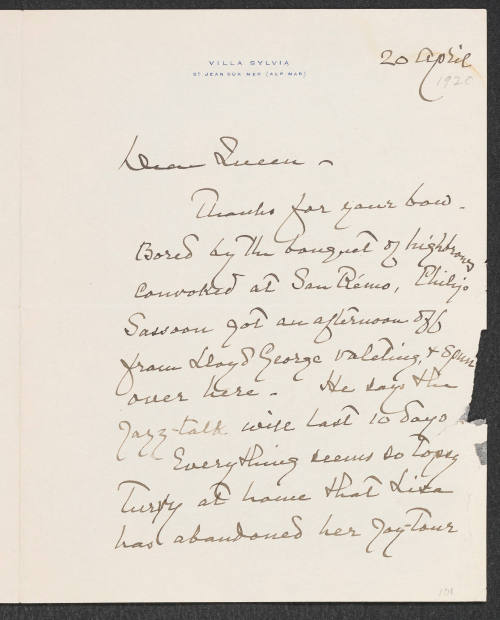 VILLA SYLVIA
ST JEAN SUR MER (ALP. MAR)
20 April
1920
Dear Queen –
Thanks for your bow.
Bored by the bouquet of highbrows
convoked at San Remo, Philip
Sassoon got an afternoon off
from Lloyd George valeting, & spun
over here – He says the
Jazz-talk will last 10 days
Everything seems so Topsy
Turvy at home that Lisa
has abandoned her Joy-Tour